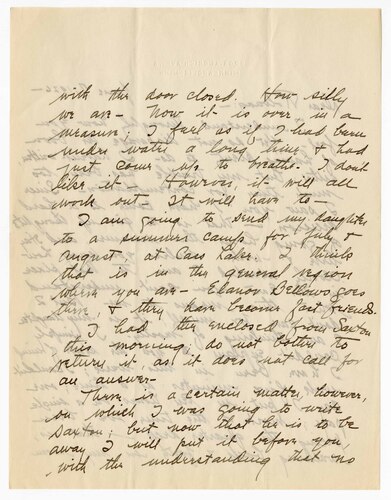 with the door closed. How silly
we are - Now it is over in a
measure; I feel as if I had been
under water a long time & had
just come up to breathe. I don't
like it - However, it will all
work out - It will have to -
I am going to send my daughter
to a summer camp for July &
August at Cass Lake. I think
that is in the general region
where you are - Elanor Bellows goes
there, & they have become fast friends.
I had the enclosed from Saxton
this morning; do not bother to
return it, as it does not call for
an answer -
There is a certain matter, however,
on which I was going to write
Saxton; but now that he is to be
away I will put it before you,
with the understanding that no